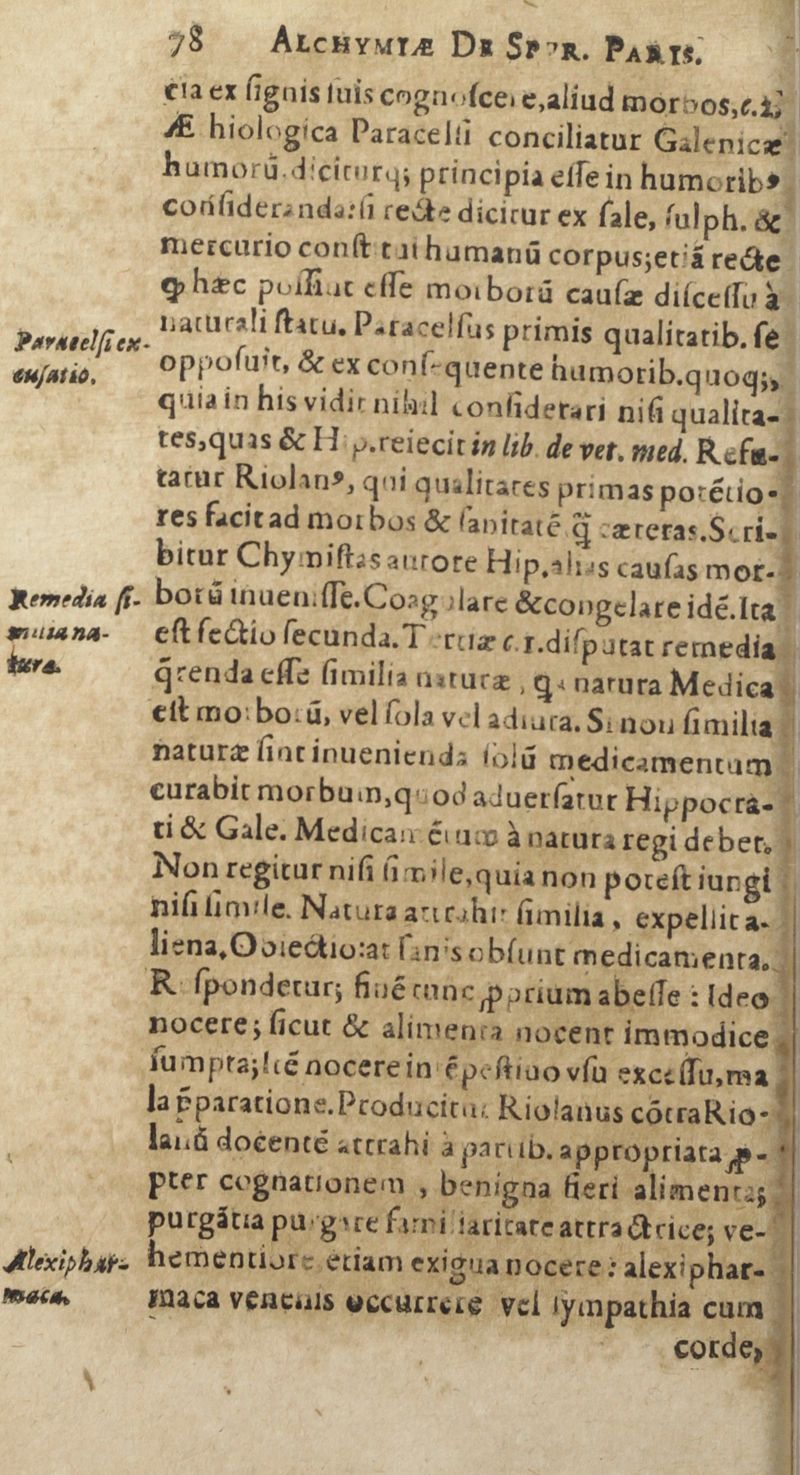 78 ALCHYMIÆ DE SPVR. PARTS.
cia ex ſignis ſuis cognoſcere, aliud morbos, c. 1.
Æ hiologica Paracelſi conciliatur Galenicæ
humorū. diciturq; principia eſſe in humorib⁹
conſideranda: ſi recte dicitur ex ſale, ſulph. &
mercurio conſtitui humanū corpus; etiā recte
ꝙ hæc poſſint eſſe morborū cauſæ diſceſſu à
naturali ſtatu. Paracelſus primis qualitatib. ſe
Paracelſi ex-
cuſatio.
oppoſuit, & ex conſequente humorib. quoq;,
quia in his vidit nihil conſiderari niſi qualita-
tes, quas & Hip. reiecit in lib. de vet. med. Refu-
tatur Riolan⁹, qui qualitates primas potētio-
res facit ad morbos & ſanitatē q̄ cæteras. Scri-
bitur Chymiſtas autore Hip. alias cauſas mor-
borū inueniſſe. Coagulare & congelare idē. Ita
Remedia ſi-
milia na-
turæ.
eſt ſectio ſecunda. Tertiæ c. 1. diſputat remedia
q̄renda eſſe ſimilia naturæ, qa natura Medica
eſt morborū, vel ſola vel adiuta. Si non ſimilia
naturæ ſint inuenienda ſolū medicamentum
curabit morbum, quod aduerſatur Hippocra-
ti & Gale. Medicamētum à natura regi debet.
Non regitur niſi ſimile, quia non poteſt iungi
niſi ſimile. Natura attrahit ſimilia, expellit a-
liena. Obiectio: at ſanis obſunt medicamenta.
R ſpondetur; finē tunc ꝓprium abeſſe: Ideo
nocere; ſicut & alimenta nocent immodice
ſumpta; itē nocere intēpeſtiuo vſu exceſſu, ma
la p̄paratione. Producitur Riolanus cōtra Rio-
lanū docentē attrahi à partib. appropriata ꝓ-
pter cognationem, benigna fieri alimenta;
purgātia purgare familiaritate attractrice; ve-
hementiore etiam exigua nocere: alexiphar-
Alexiphar-
maca.
maca venenis occurrere vel ſympathia cum
corde,